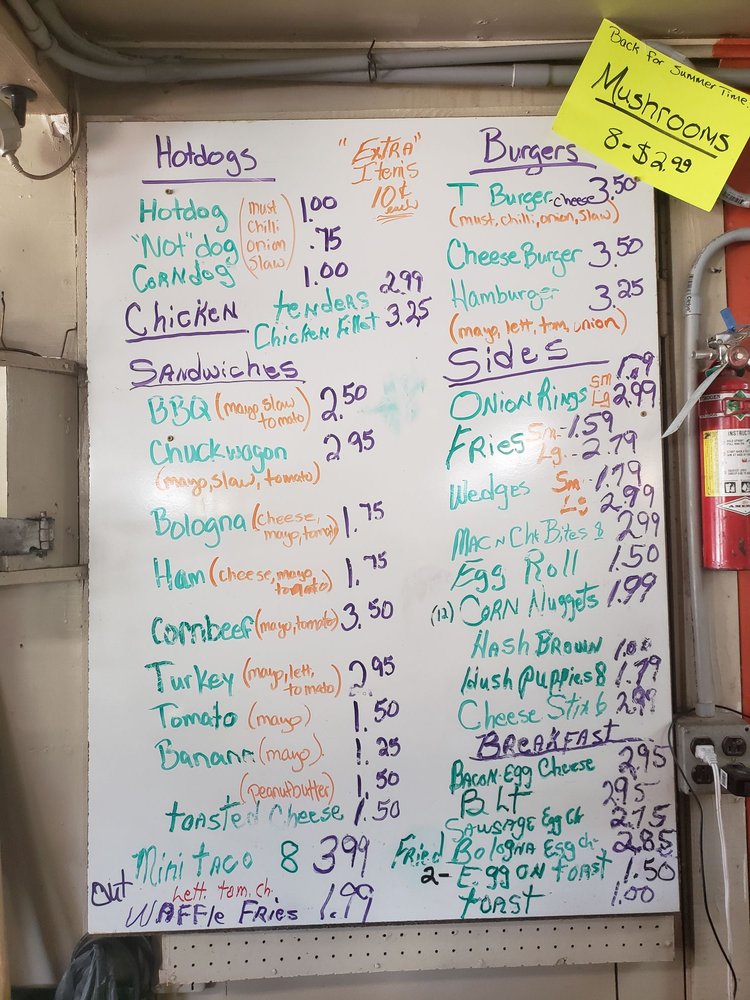 Back for Summer Time.
Mushrooms
8-$2.99
Hotdogs
"Extra"
Items
10¢
each
Hotdog 1.00
"Not" dog .75
Corndog 1.00
(must
chilli
onion
slaw)
Chicken
tenders 2.99
Chicken Fillet 3.25
Sandwiches
BBQ (mayo, slaw tomato) 2.50
Chuckwagon 2.95
(mayo, slaw, tomato)
Bologna (cheese, mayo, tomato) 1.75
Ham (cheese, mayo tomato) 1.75
Cornbeef (mayo, tomato) 3.50
Turkey (mayo, lett, tomato) 2.95
Tomato (mayo) 1.50
Banann (mayo) 1.25
(peanutbutter) 1.50
toasted cheese 1.50
Mini taco 8 3.99
Lett. tom. ch.
out
Waffle Fries 1.99
Burgers
T Burger-cheese 3.50
(must, chilli, onion, slaw)
Cheese Burger 3.50
Hamburger 3.25
(mayo, lett, tom, onion)
Sides
Onion Rings Sm 1.79
Lg 2.99
Fries Sm-1.59
Lg-2.79
Wedges Sm-1.79
Lg 2.99
Mac n Ch Bites 8 2.99
Egg Roll 1.50
(12) Corn Nuggets 1.99
Hash Brown 1.00
Hush Puppies 8 1.79
Cheese Stix 6 2.99
Breakfast
Bacon-Egg Cheese 2.95
BLT 2.95
Sausage Egg Ch 2.75
Fried Bologna Egg ch- 2.85
2- Egg on toast 1.50
toast 1.00